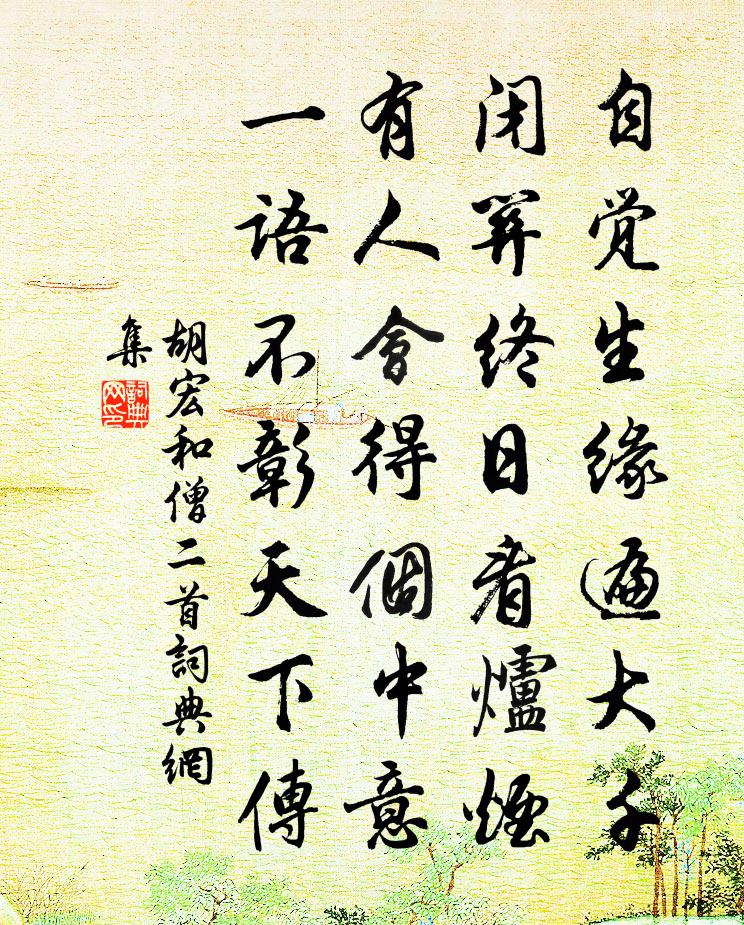 自觉生缘遍大千
闭門终日看爐煙
有人會得個中意
一語不彰天下傳
胡宏和僧二首詞典網
集
詞典
网印